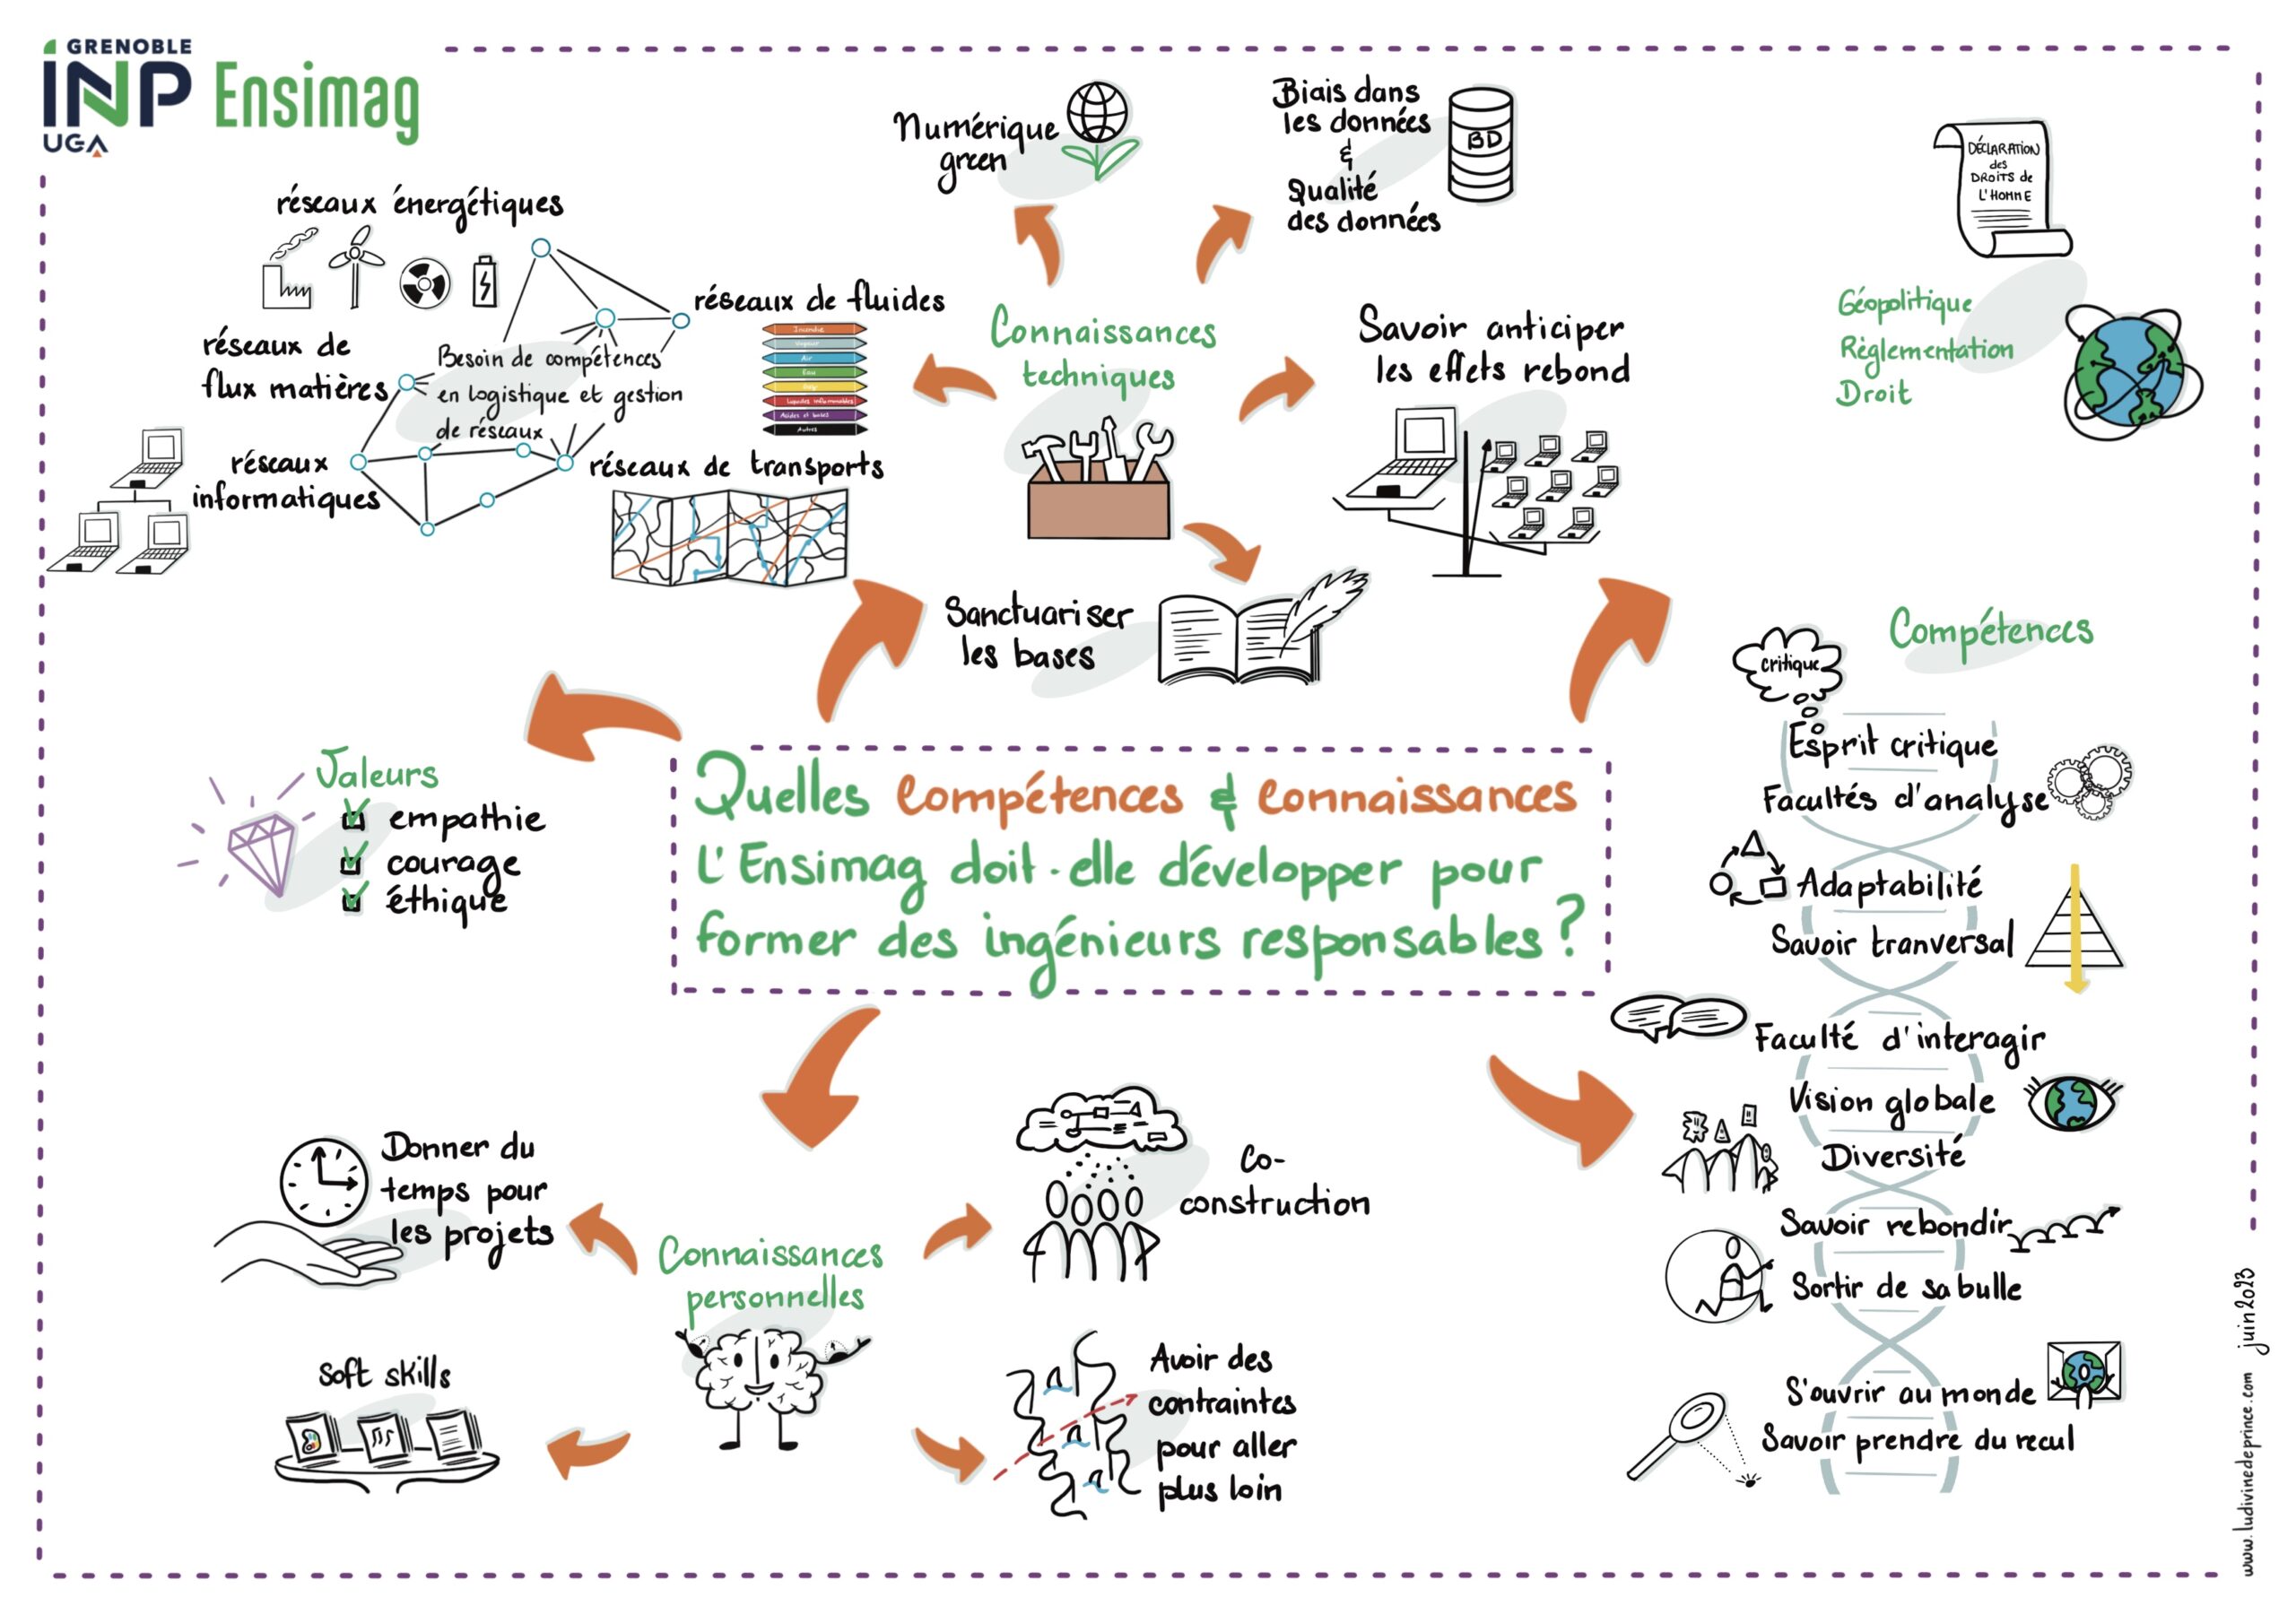 GRENOBLE
INP
UGA
Ensimag
réseaux énergétiques
réseaux de fluides
Incendie
Vapeur
Air
Eau
Gaz
Liquides inflammables
Acides et bases
Autres
réseaux de
flux matières
Besoin de compétences
en logistique et gestion
de réseaux
réseaux
informatiques
réseaux de transports
Numérique
green
Biais dans
les données
&
Qualité
des données
BD
Connaissances
techniques
Savoir anticiper
les effets rebond
Sanctuariser
les bases
DÉCLARATION
des
DROITS de
L'HOMME
Géopolitique
Règlementation
Droit
Valeurs
empathie
courage
éthique
Quelles compétences & connaissances
L'Ensimag doit-elle développer pour
former des ingénieurs responsables ?
Compétences
critique
Esprit critique
Facultés d'analyse
Adaptabilité
Savoir tranversal
Faculté d'interagir
Vision globale
Diversité
Savoir rebondir
Sortir de sa bulle
S'ouvrir au monde
Savoir prendre du recul
Donner du
temps pour
les projets
Connaissances
personnelles
Co-
construction
Soft skills
Avoir des
contraintes
pour aller
plus loin
www.ludivinedeprince.com juin 2023